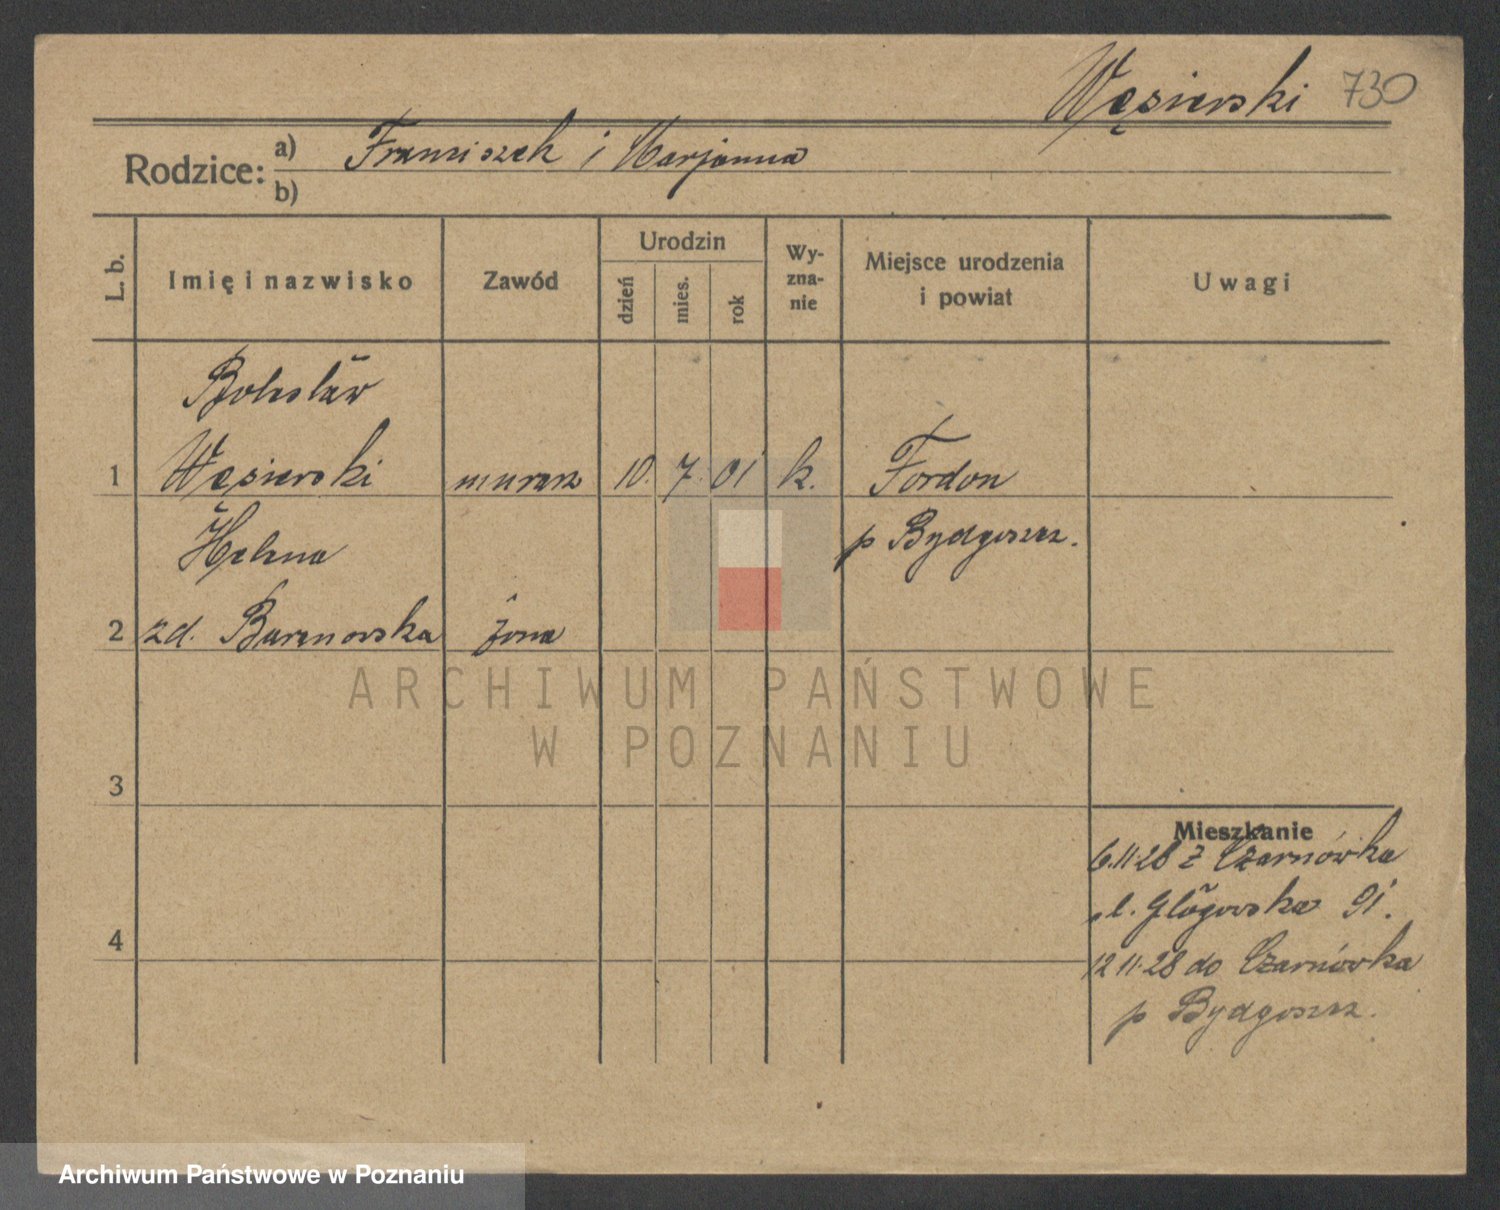 Węsierski 730
Rodzice: a) Franciszek i Marjanna
b)
L. b.
Imię i nazwisko
Zawód
Urodzin
dzień
mies.
rok
Wy-
zna-
nie
Miejsce urodzenia
i powiat
Uwagi
Bolesław
1 Węsierski murarz 10. 7. 01 k. Fordon
Helena p Bydgoszcz.
2 zd. Baranowska żona
ARCHIWUM PAŃSTWOWE
W POZNANIU
3
Mieszkanie
6.11.28 z Czarnówka
ul. Głogowska 91.
4
12 11.28 do Czarnówka
p Bydgoszcz.
Archiwum Państwowe w Poznaniu